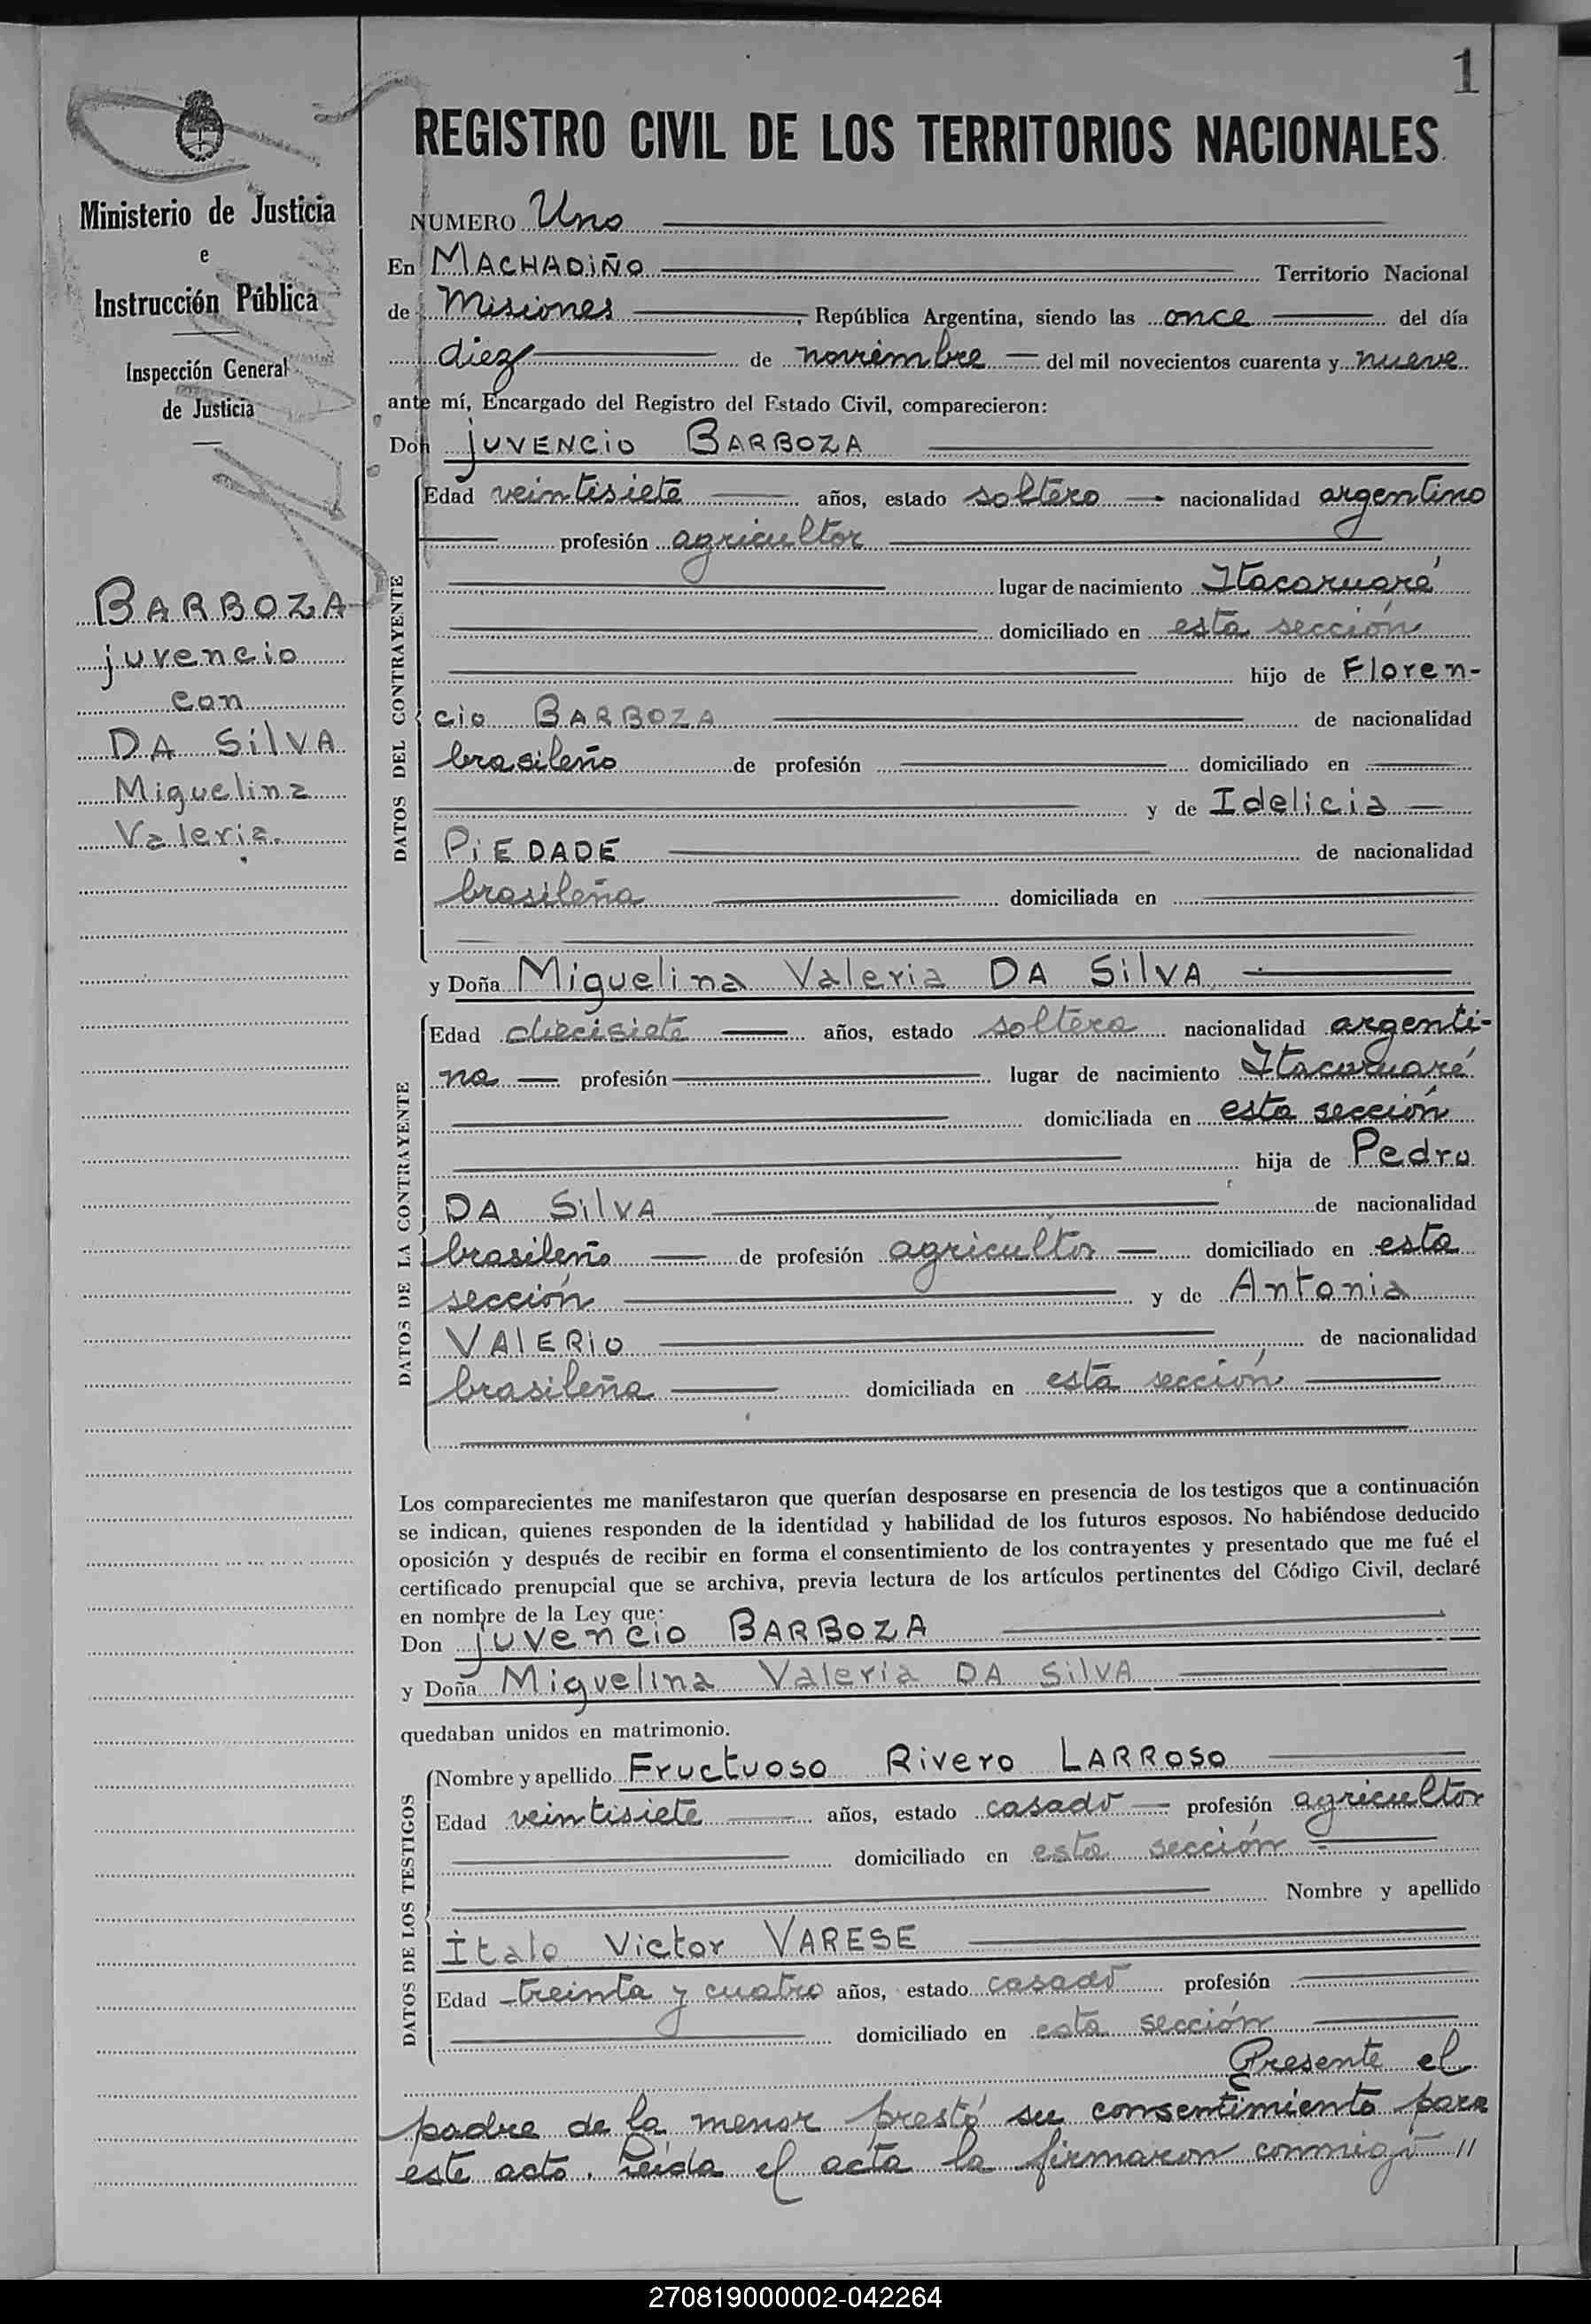 1
Ministerio de Justicia
e
Instrucción Pública
Inspección General
de Justicia
BARBOZA
juvencio
con
DA SilVA
Miguelina
Valeria.
REGISTRO CIVIL DE LOS TERRITORIOS NACIONALES
NUMERO Uno
En MACHADiÑO Territorio Nacional
de Misiones, República Argentina, siendo las once del día
diez de noviembre del mil novecientos cuarenta y nueve
ante mí, Encargado del Registro del Estado Civil, comparecieron:
Don jUVENCiO BARBOZA
DATOS DEL CONTRAYENTE
Edad veintisiete años, estado soltero nacionalidad argentino
profesión agricultor
lugar de nacimiento Itacaruaré
domiciliado en esta sección
hijo de Floren-
cio BARBOZA de nacionalidad
brasileño de profesión domiciliado en
y de Idelicia
PiEDADE de nacionalidad
brasileña domiciliada en
y Doña Miguelina Valeria DA SilVA
DATOS DE LA CONTRAYENTE
Edad diecisiete años, estado soltera nacionalidad argenti-
na profesión lugar de nacimiento Itacaruaré
domiciliada en esta sección
hija de Pedro
DA SilVA de nacionalidad
brasileño de profesión agricultor domiciliado en esta
sección y de Antonia
VAlERiO de nacionalidad
brasileña domiciliada en esta sección
Los comparecientes me manifestaron que querían desposarse en presencia de los testigos que a continuación
se indican, quienes responden de la identidad y habilidad de los futuros esposos. No habiéndose deducido
oposición y después de recibir en forma el consentimiento de los contrayentes y presentado que me fué el
certificado prenupcial que se archiva, previa lectura de los artículos pertinentes del Código Civil, declaré
en nombre de la Ley que:
Don juvencio BARBOZA
y Doña Miguelina Valeria DA SilVA
quedaban unidos en matrimonio.
DATOS DE LOS TESTIGOS
Nombre y apellido Fructuoso Rivero LARROSO
Edad veintisiete años, estado casado profesión agricultor
domiciliado en esta sección
Nombre y apellido
Italo Victor VARESE
Edad treinta y cuatro años, estado casado profesión
domiciliado en esta sección
Presente el
padre de la menor prestó su consentimiento para
este acto. Leida el acta la firmaron conmigo //
270819000002-042264